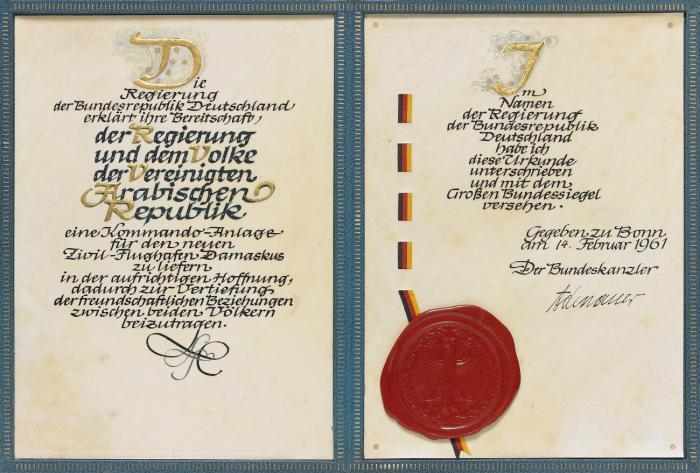 Die
Regierung
der Bundesrepublik Deutschland
erklärt ihre Bereitschaft,
der Regierung
und dem Volke
der Vereinigten
Arabischen
Republik
eine Kommando-Anlage
für den neuen
Zivil-Flughafen Damaskus
zu liefern
in der aufrichtigen Hoffnung,
dadurch zur Vertiefung
der freundschaftlichen Beziehungen
zwischen beiden Völkern
beizutragen.
Im
Namen
der Regierung
der Bundesrepublik
Deutschland
habe ich
diese Urkunde
unterschrieben
und mit dem
Großen Bundessiegel
versehen.
Gegeben zu Bonn
am 14. Februar 1961
Der Bundeskanzler
Adenauer